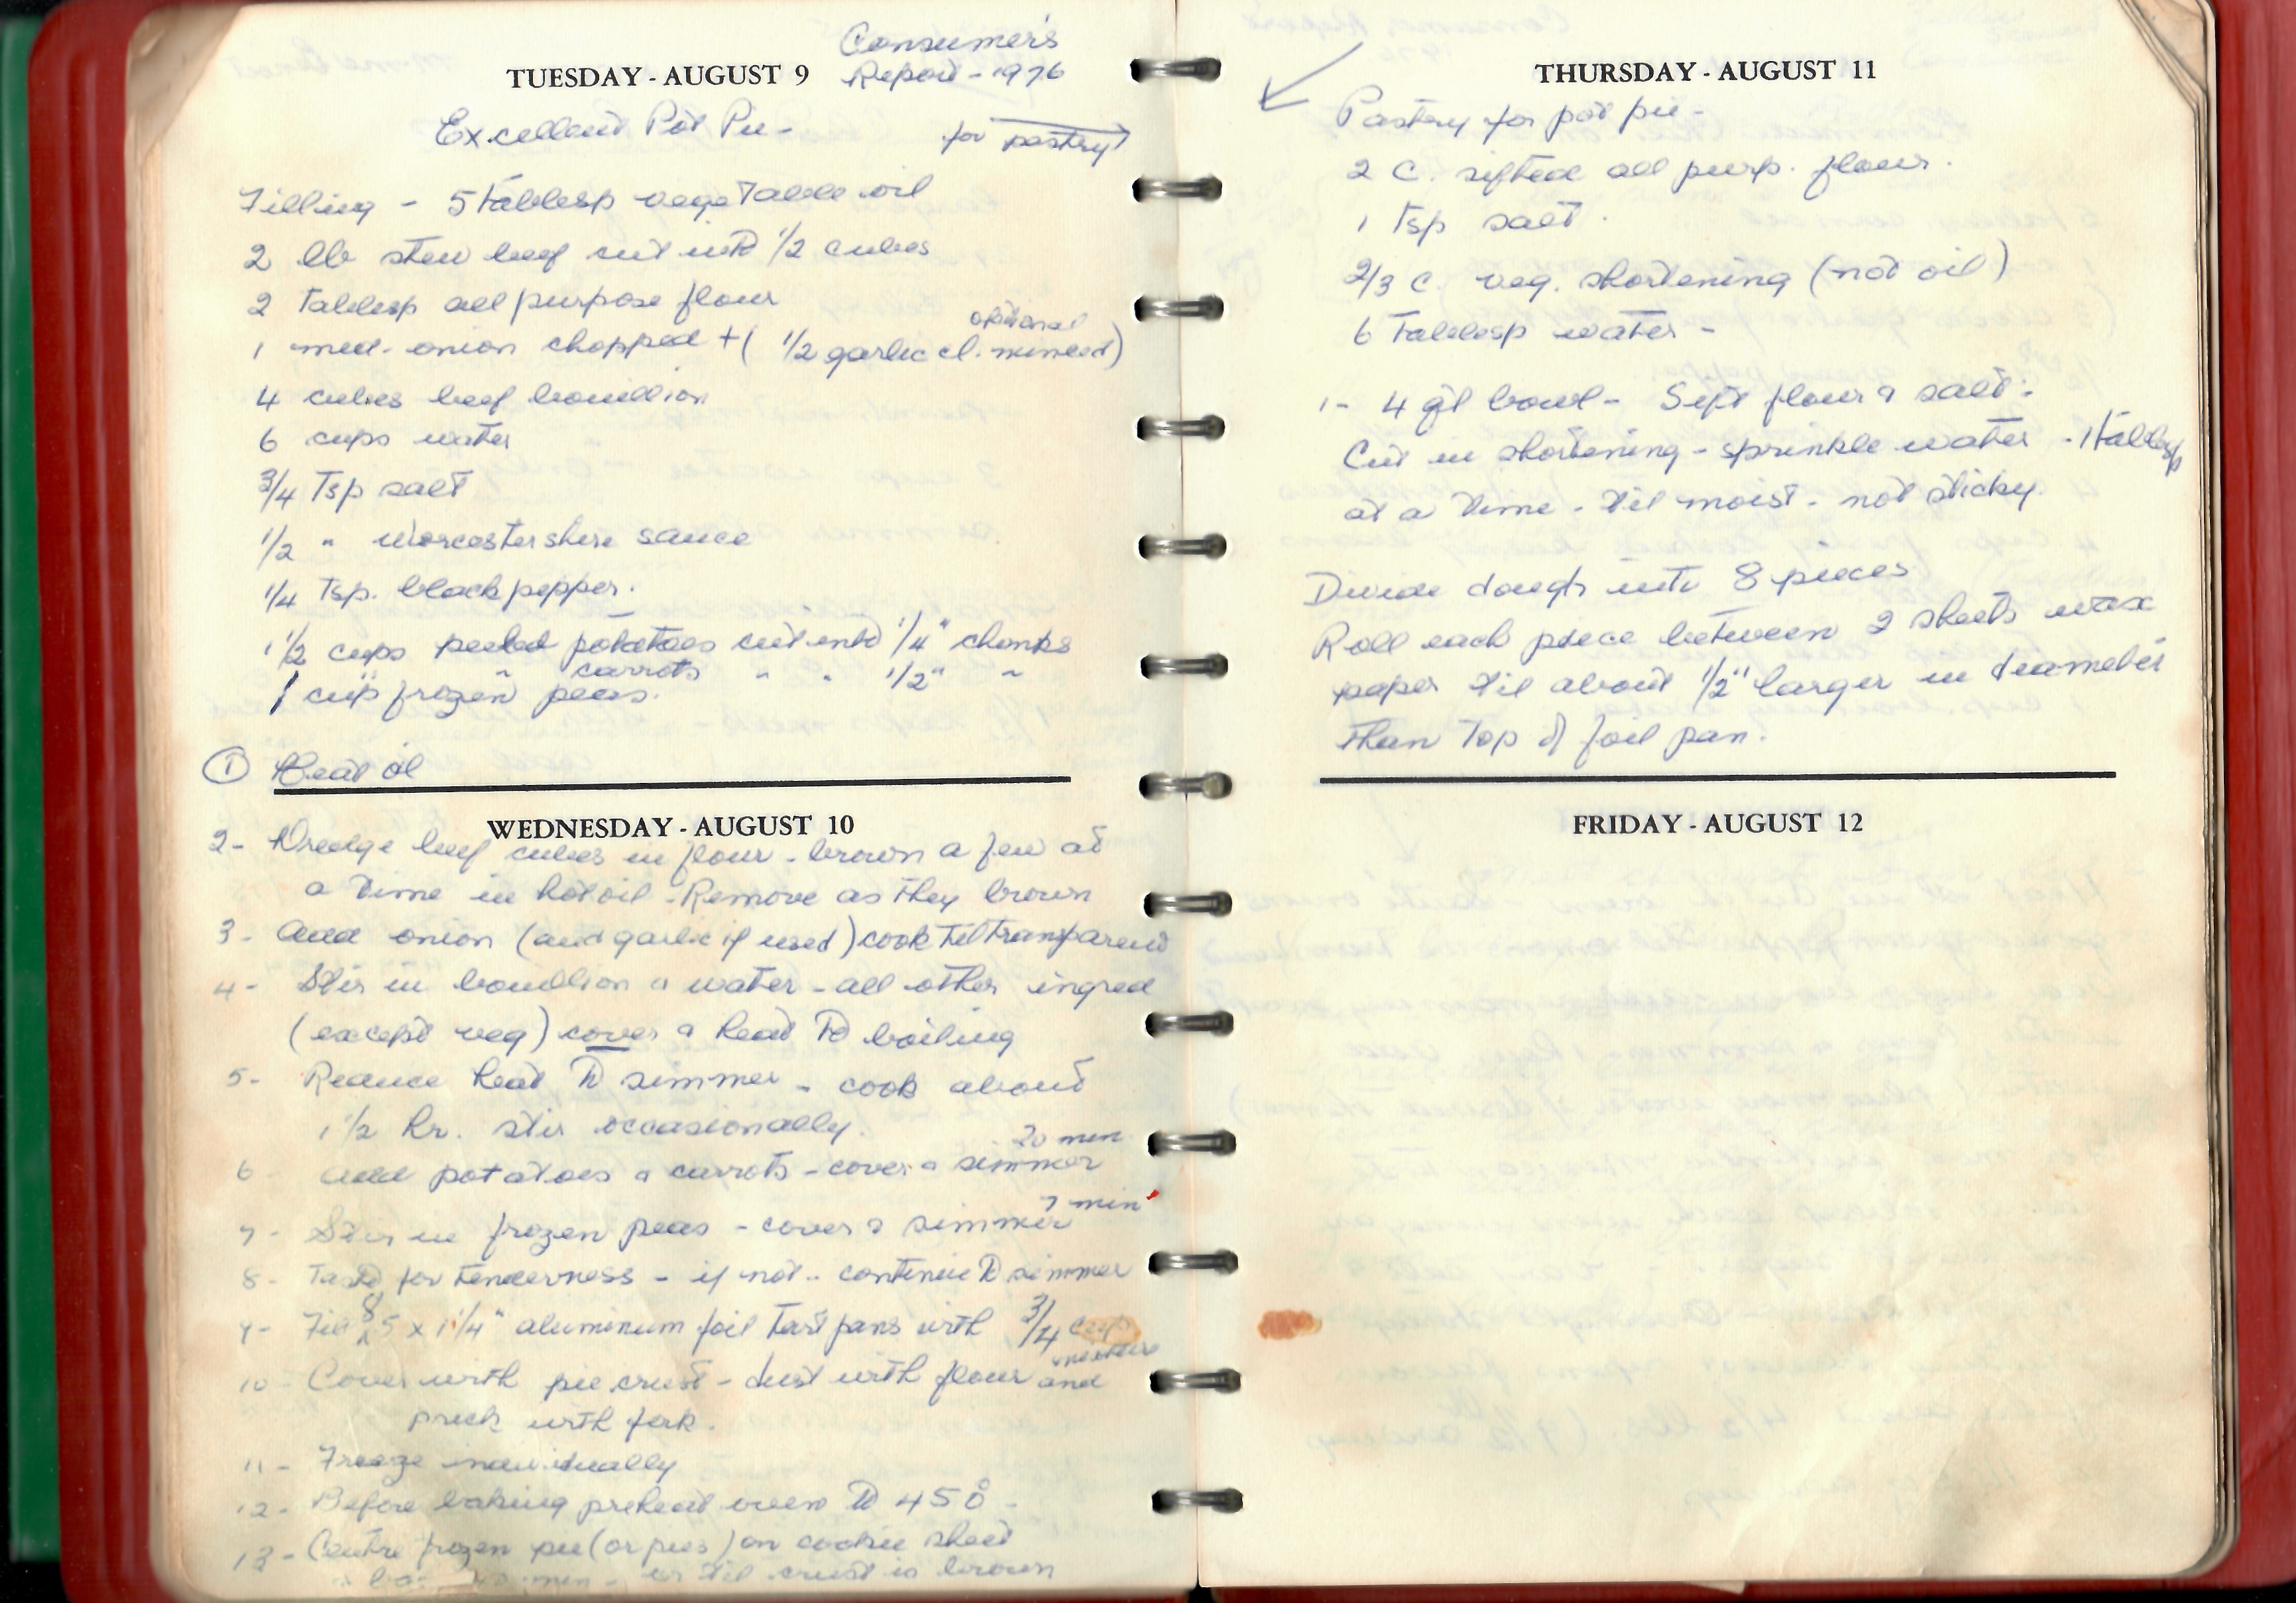 TUESDAY - AUGUST 9
Consumer's
Report - 1976
Excellent Pot Pie -
for pastry
Filling - 5 tablesp vegetable oil
2 lb stew beef cut into 1/2 cubes
2 tablesp all purpose flour
1 med. onion chopped + ( 1/2 garlic cl. minced) optional
4 cubes beef bouillion
6 cups water
3/4 Tsp salt
1/2 " worcestershire sauce
1/4 Tsp. black pepper.
1 1/2 cups peeled potatoes cut into 1/4" chunks
" " carrots " " 1/2" "
1 cup frozen peas.
① Heat oil
WEDNESDAY - AUGUST 10
2- Dredge beef cubes in flour - brown a few at
a time in hot oil - Remove as they brown
3- Add onion (and garlic if used) cook til transparent
4- Stir in bouillion & water - all other ingred
(except veg) cover & heat to boiling
5- Reduce heat to simmer - cook about
1 1/2 hr. stir occasionally.
6 add potatoes & carrots - cover & simmer 20 min
7- Stir in frozen peas - cover & simmer 7 min
8- Taste for tenderness - if not - continue to simmer
9- Fill 8 5 x 1 1/4" aluminum foil tart pans with 3/4 cup
mixture
10- Cover with pie crust - dust with flour and
prick with fork.
11- Freeze individually
12- Before baking preheat oven to 450° -
13- Centre frozen pie (or pies) on cookie sheet
40 min - or til crust is brown
THURSDAY - AUGUST 11
Pastry for pot pie -
2 C. sifted all purp. flour.
1 Tsp salt.
2/3 C. veg. shortening (not oil)
6 Tablesp water -
1- 4 qt bowl - Sift flour & salt.
Cut in shortening - sprinkle water - 1 tablesp
at a time - til moist - not sticky.
Divide dough into 8 pieces
Roll each piece between 2 sheets wax
paper til about 1/2" larger in diameter
than top of foil pan.
FRIDAY - AUGUST 12